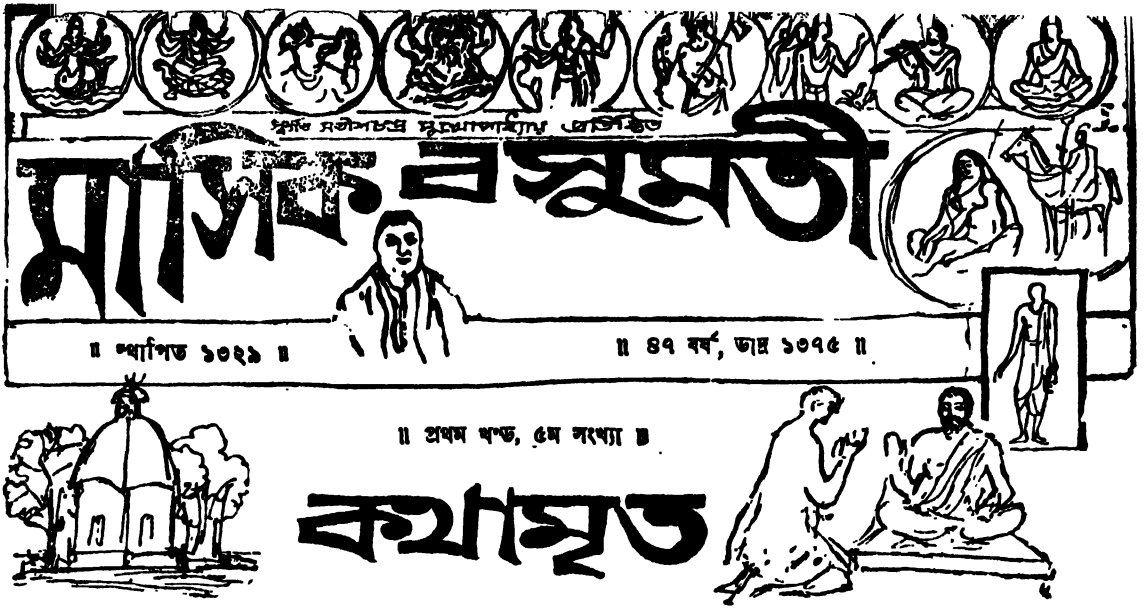 স্বর্গত সতীশচন্দ্র মুখোপাধ্যায় প্রতিষ্ঠিত
মাসিক বসুমতী
॥ স্থাপিত ১৩২৯ ॥
॥ ৪৭ বর্ষ, ভাদ্র ১৩৭৫ ॥
॥ প্রথম খণ্ড, ৫ম সংখ্যা ॥
কথামৃত